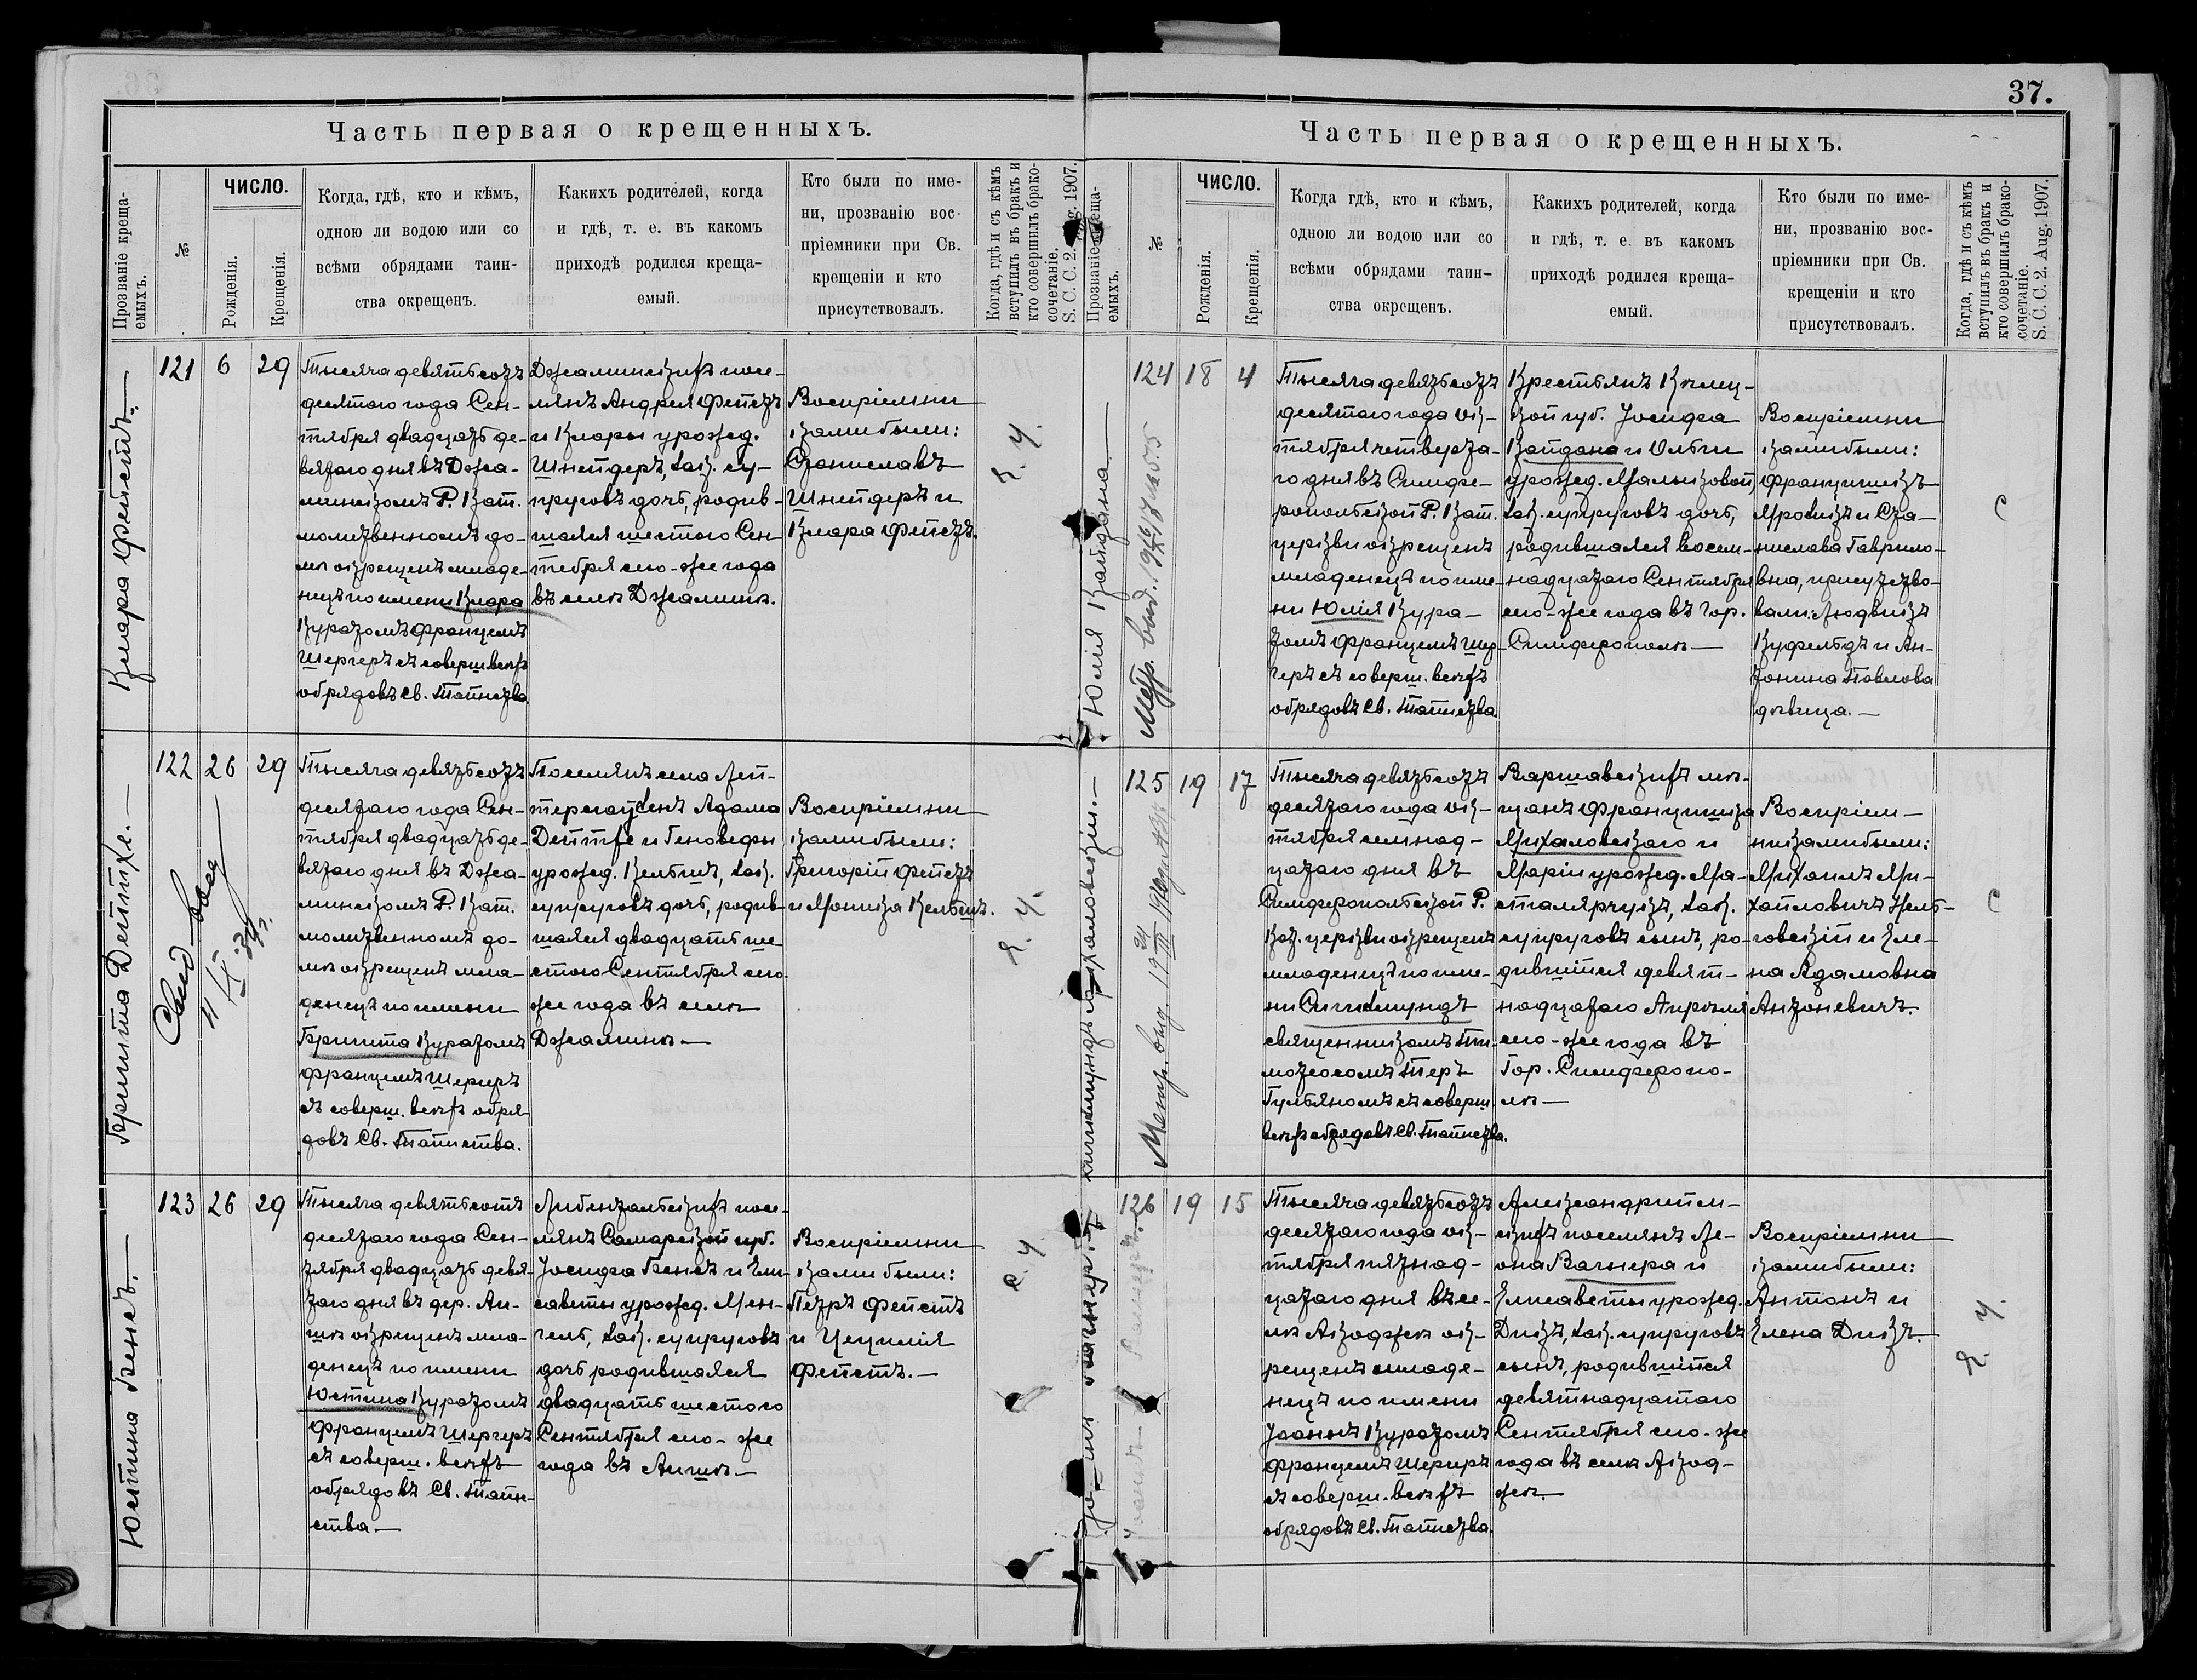 37.
Часть первая о крещенныхъ.
Прозваніе креща-
емыхъ.
№
ЧИСЛО.
Рожденія.
Крещенія.
Когда, гдѣ, кто и кѣмъ,
одною ли водою или со
всѣми обрядами таин-
ства окрещенъ.
Какихъ родителей, когда
и гдѣ, т. е. въ какомъ
приходѣ родился креща-
емый.
Кто были по име-
ни, прозванію вос-
пріемники при Св.
крещеніи и кто
присутствовалъ.
Когда, гдѣ и съ кѣмъ
вступилъ въ бракъ и
кто совершилъ брако-
сочетаніе.
S. C. C. 2. Aug. 1907.
Клара Фетстъ.
121 6 29
Тысяча девятьсотъ
десятаго года Сен-
тября двадцать де-
вятаго дня въ Джа-
минскомъ Р. Кат.
молитвенномъ до-
мѣ окрещенъ младе-
нецъ по имени Клара
Куратомъ Францемъ
Шерреръ съ соверш. всѣхъ
обрядовъ Св. Таинства.
Джаминскихъ посе-
лянъ Андрея Фетстъ
и Клары урожд.
Шнейдеръ, зак. су-
пруговъ дочь, родив-
шаяся шестого Сен-
тября сего-же года
въ селѣ Джаминъ.
Воспріемни
ками были:
Станиславъ
Шнейдеръ и
Клара Фетстъ.
Бригита Дейтхе.
122 26 29
Свид. выд
11/IX 34 г.
Тысяча девятьсотъ
десятаго года Сен-
тября двадцать де-
вятаго дня въ Джа-
минскомъ Р. Кат.
молитвенномъ до-
мѣ окрещенъ мла-
денецъ по имени
Бригита Куратомъ
Францемъ Шерреръ
съ соверш. всѣхъ обря-
довъ Св. Таинства.
Поселянъ села Лей-
Адама
Дейтхе и Геновефы
урожд. Кельшъ, зак.
супруговъ дочь, родив-
шаяся двадцать ше-
стого Сентября сего
же года въ селѣ
Джаминъ —
Воспріемни
ками были:
Григорій Фетстъ
и Моника Кельшъ.
Юстина Бенсъ.
123 26 29
Тысяча девятьсотъ
десятаго года Сен-
тября двадцать девя-
таго дня въ дер. Ан-
окрещенъ мла-
денецъ по имени
Юстина Куратомъ
Францемъ Шерреръ
съ соверш. всѣхъ
обрядовъ Св. Таин-
ства —
посе-
лянъ Самарской губ.
Іосифа Бенсъ и Ели-
саветы урожд. Мен-
гель, зак. супруговъ
дочь родившаяся
двадцать шестого
Сентября сего-же
года въ
Воспріемни
ками были:
Петръ Фетстъ
и Цецилія
Фетстъ. —
Часть первая о крещенныхъ.
Прозваніе креща-
емыхъ.
№
ЧИСЛО.
Рожденія.
Крещенія.
Когда гдѣ, кто и кѣмъ,
одною ли водою или со
всѣми обрядами таин-
ства окрещенъ.
Какихъ родителей, когда
и гдѣ, т. е. въ какомъ
приходѣ родился креща-
емый.
Кто были по име-
ни, прозванію вос-
пріемники при Св.
крещеніи и кто
присутствовалъ.
Когда, гдѣ и съ кѣмъ
вступилъ въ бракъ и
кто совершилъ брако-
сочетаніе.
S. C. C. 2. Aug. 1907.
Юлія Кайдана
124 18 4
Тысяча девятьсотъ
десятаго года ок-
тября четверта-
го дня въ Симфе-
ропольской Р. Кат.
церкви окрещенъ
младенецъ по име-
ни Юлія Кура-
томъ Францемъ Шер-
реръ съ соверш. всѣхъ
обрядовъ Св. Таинства.
Крестьянъ
губ. Іосифа
Кайдана и Ольги
урожд.
зак. супруговъ дочь,
родившаяся восем-
надцатаго Сентября
сего-же года въ гор.
Симферополѣ —
Воспріемни
ками были:
Францишекъ
и Ста-
нислава Гаврило-
вна, присутство-
вали: Людвикъ
и Ан-
тонина Павлова
дѣвица. —
125 19 17
Тысяча девятьсотъ
десятаго года ок-
тября семнад-
цатаго дня въ
Симферопольской Р.
Кат. церкви окрещенъ
младенецъ по име-
ни Сигизмундъ
священникомъ Ти-
Теръ
съ соверш.
всѣхъ обрядовъ Св. Таинства.
Варшавскихъ мѣ-
щанъ Францишка
Михаловскаго и
Маріи урожд. Ма-
зак.
супруговъ сынъ, ро-
дившійся девят-
надцатаго Апрѣля
сего-же года въ
Гор. Симферопо-
лѣ —
Воспріем-
никами были:
Михаилъ Ми-
хайловичъ
и Еле-
на Адамовна
Антоневичъ.
126 19 15
Тысяча девятьсотъ
десятаго года ок-
тября пятнад-
цатаго дня въ се-
лѣ ок-
рещенъ младе-
нецъ по имени
Іоаннъ Куратомъ
Францемъ Шерреръ
съ соверш. всѣхъ
обрядовъ Св. Таинства.
поселянъ Ле-
она Вагнера и
Елисаветы урожд.
Дикъ, зак. супруговъ
сынъ, родившійся
девятнадцатаго
Сентября сего-же
года въ селѣ
Воспріемни
ками были:
Антонъ и
Елена Дикъ.